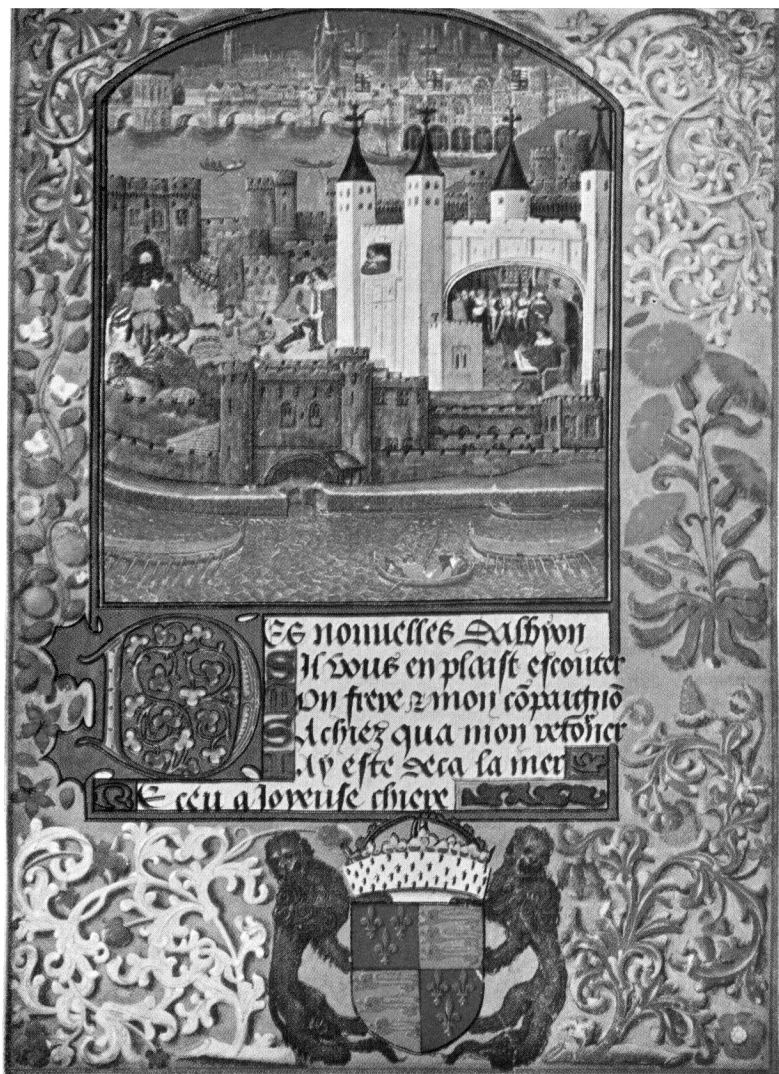 Des nouuelles dalbyon
Sil vous en plaist escouter
Mon frere & mon cõpaignõ
Sachiez qua mon retoũer
Jay este deca la mer
Receu a Joyeuse chiere